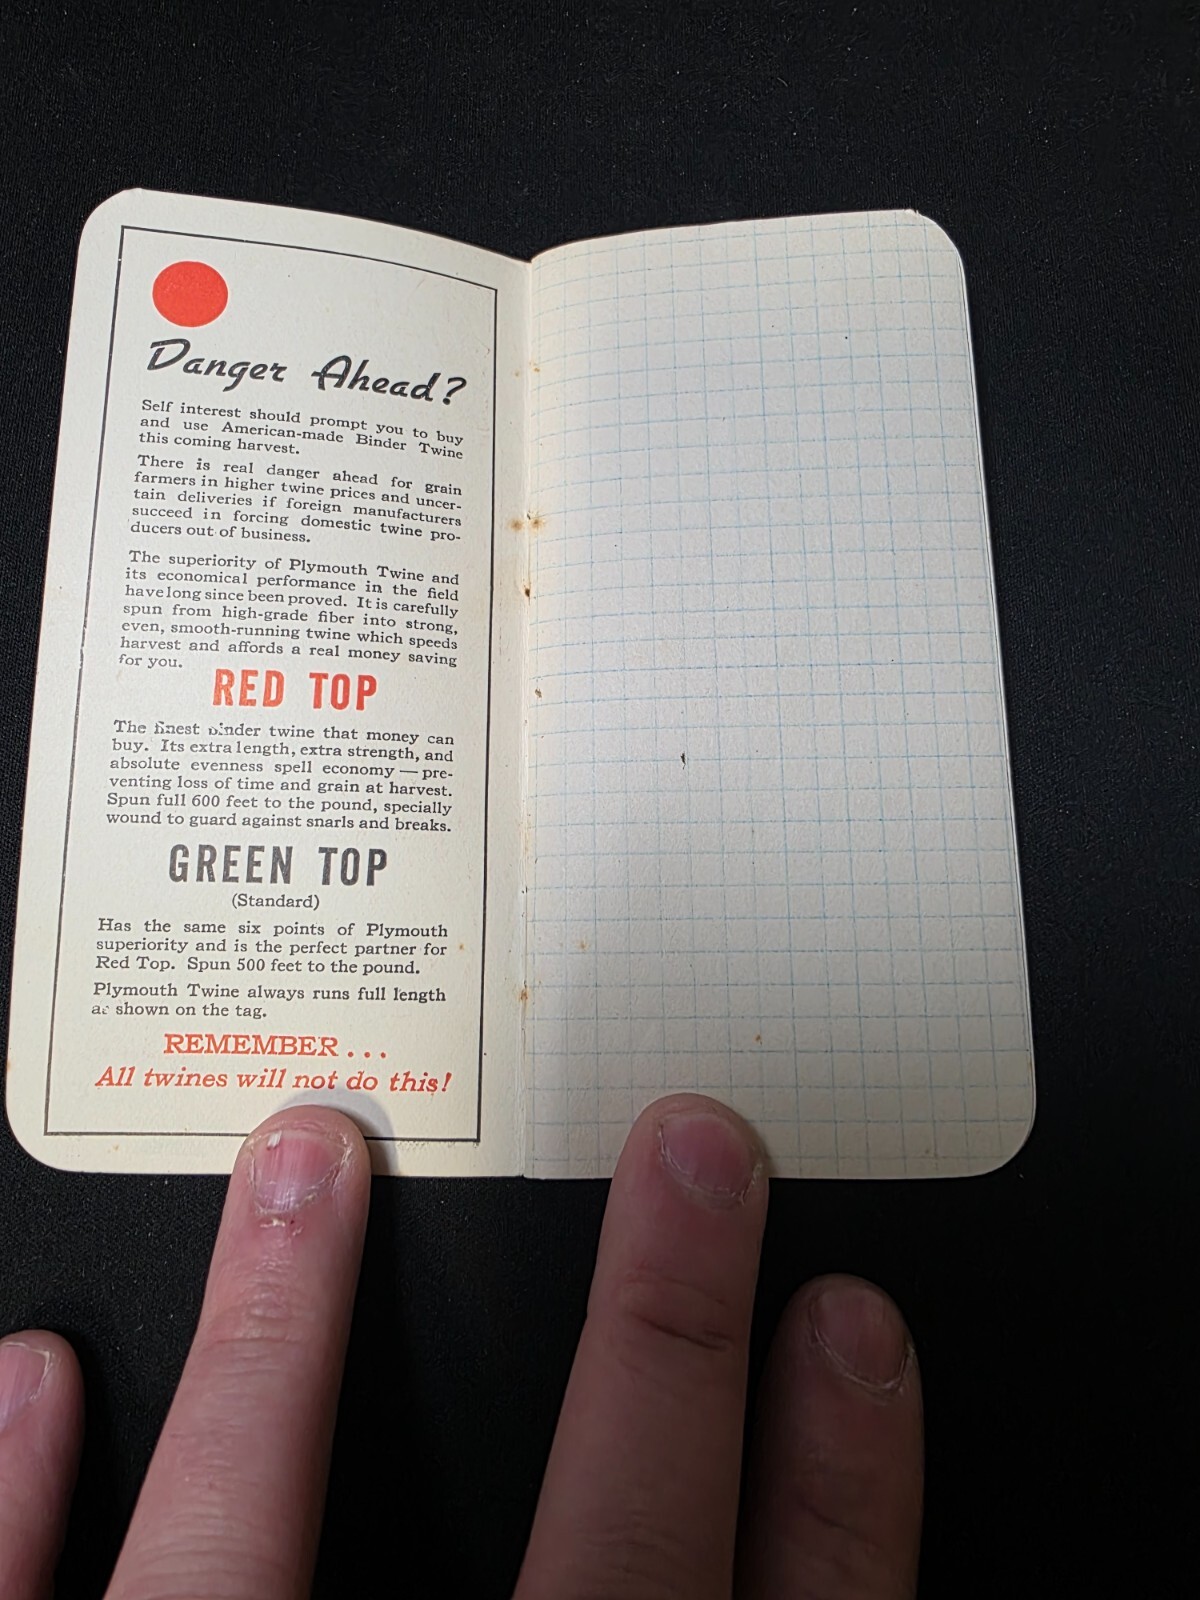 Danger Ahead?
Self interest should prompt you to buy
and use American-made Binder Twine
this coming harvest.
There is real danger ahead for grain
farmers in higher twine prices and uncer-
tain deliveries if foreign manufacturers
succeed in forcing domestic twine pro-
ducers out of business.
The superiority of Plymouth Twine and
its economical performance in the field
have long since been proved. It is carefully
spun from high-grade fiber into strong,
even, smooth-running twine which speeds
harvest and affords a real money saving
for you.
RED TOP
The finest binder twine that money can
buy. Its extra length, extra strength, and
absolute evenness spell economy — pre-
venting loss of time and grain at harvest.
Spun full 600 feet to the pound, specially
wound to guard against snarls and breaks.
GREEN TOP
(Standard)
Has the same six points of Plymouth
superiority and is the perfect partner for
Red Top. Spun 500 feet to the pound.
Plymouth Twine always runs full length
as shown on the tag.
REMEMBER...
All twines will not do this!